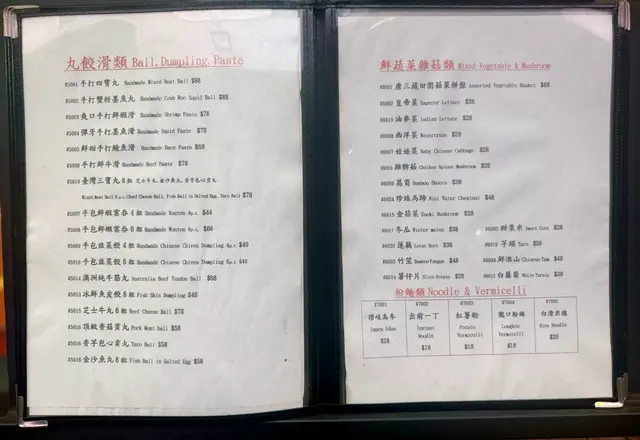 丸餃滑類 Ball, Dumpling, Paste
#5001 手打四寶丸 Handmade Mixed Meat Ball $88
#5002 手打蟹籽墨魚丸 Handmade Crab Roe Squid Ball $88
#5003 爽口手打鮮蝦滑 Handmade Shrimp Paste $78
#5004 彈牙手打墨魚滑 Handmade Squid Paste $78
#5005 鮮甜手打鯪魚滑 Handmade Dace Paste $68
#5006 手打鮮牛滑 Handmade Beef Paste $78
#5019 臺灣三寶丸 6粒 芝士牛丸, 金沙魚丸, 香芋包心貢丸
Mixed Meat Ball 6pcs Cheef Cheese Ball, Fish Ball in Salted Egg, Taro Ball $78
#5007 手包鮮蝦雲吞 4粒 Handmade Wonton 4p.c $44
#5008 手包鮮蝦雲吞 6粒 Handmade Wonton 6p.c. $66
#5009 手包韮菜餃 4粒 Handmade Chinese Chives Dumpling 4p.c $40
#5010 手包韮菜餃 6粒 Handmade Chinese Chives Dumpling 6p.c
#5014 澳洲純牛筋丸 Australia Beef Tendon Ball $68
#5013 冰鮮魚皮餃 8粒 Fish Skin Dumpling $48
#5015 芝士牛丸 6粒 Beef Cheese Ball $78
#5016 頂級香菇貢丸 Pork Meat Ball $58
香芋包心貢丸 Taro Ball $58
#5018 金沙魚丸 8粒 Fish Ball in Salted Egg $58
鮮蔬菜雜菇類 Mixed Vegetable & Mushroom
#6051 唐三藏田園菇菜拼盤 Assorted Vegetable Basket $68
皇帝菜 Emperor Lettuce $38
油麥菜 Indian Lettuce $28
西洋菜 Watercress $28
#6007 娃娃菜 Baby Chinese Cabbage $28
雞髀菇 Chicken Spleen Mushroom $28
萵筍 Bamboo Shoots $38
珍珠馬蹄 Mini Water Chestnut $48
#6015 金菇菜 Enoki Mushroom $28
#6017 冬瓜 Winter melon $38
#6005 甜粟米 Sweet Corn $28
蓮藕 Lotus Root $38
#6019 芋頭 Taro $58
竹笙 Bamboo Fungus $48
鮮淮山 Chinese Yam $48
#6014 薯仔片 Slice Potato $28
白蘿蔔 White Turnip $38
粉麵類 Noodle & Vermicelli
#7001 #7002 #7003 #7004
讚岐烏冬 出前一丁 紅薯粉 龍口粉絲 台灣米線
Japan Udon Instant Noodle Potato Vermicelli Longkou Vermicelli Rice Noodle
$28 $18 $18 $18 $28